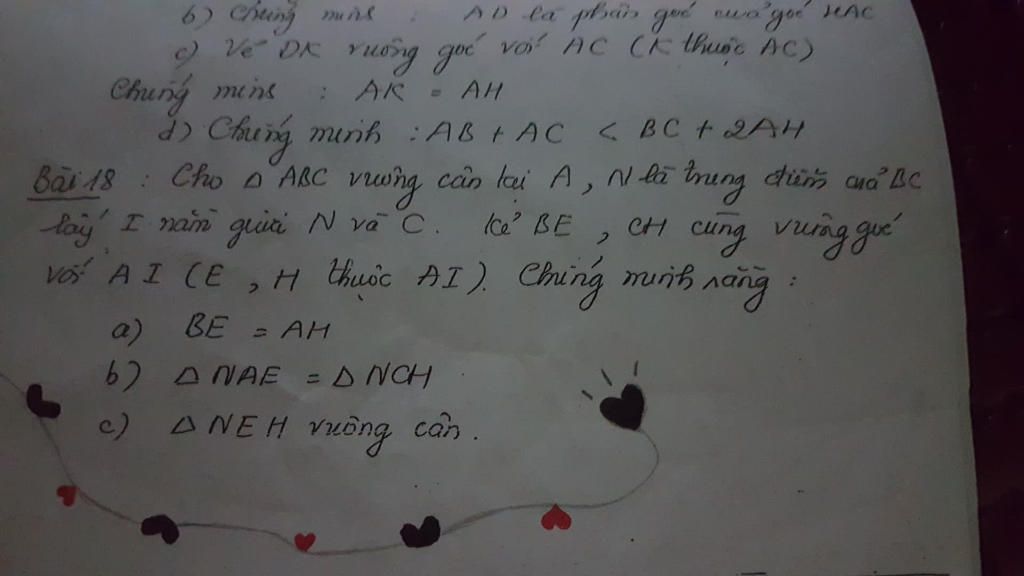 b) Chứng minh : AD là phân góc cuả góc HAC
c) Vẽ DK vuông góc với AC (K thuộc AC)
Chứng minh : AK = AH
d) Chứng minh : AB + AC < BC + 2AH
Bài 18 : Cho Δ ABC vuông cân tại A, N là trung điểm cuả BC
lấy I nằm giữa N và C. Kẻ BE, CH cùng vuông góc
với AI (E, H thuộc AI). Chứng minh rằng :
a) BE = AH
b) Δ NAE = Δ NCH
c) Δ NEH vuông cân.